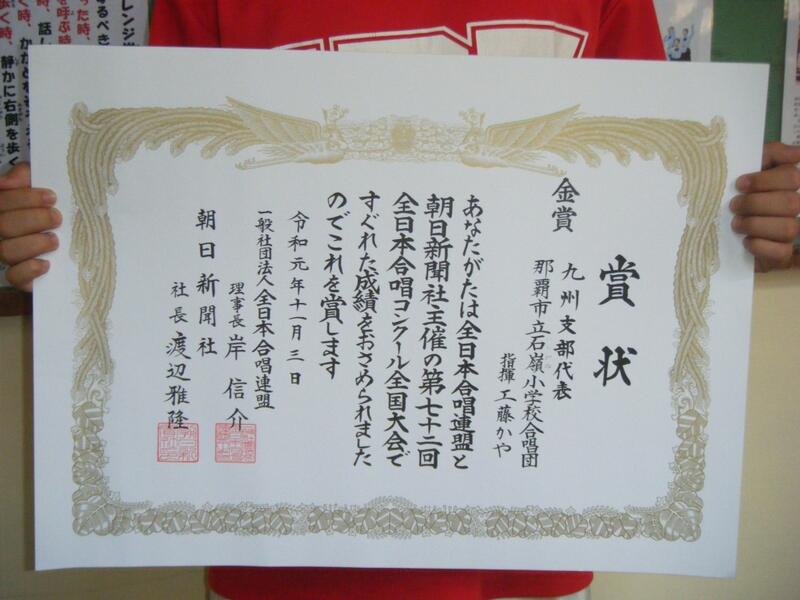 賞状
金賞 九州支部代表
那覇市立石嶺小学校合唱団
指揮 工藤かや
あなたがたは全日本合唱連盟と
朝日新聞社主催の第七十二回
全日本合唱コンクール全国大会で
すぐれた成績をおさめられました
のでこれを賞します
令和元年十一月三日
一般社団法人全日本合唱連盟
理事長 岸信介
朝日新聞社
社長 渡辺雅隆
静かに右側を歩く